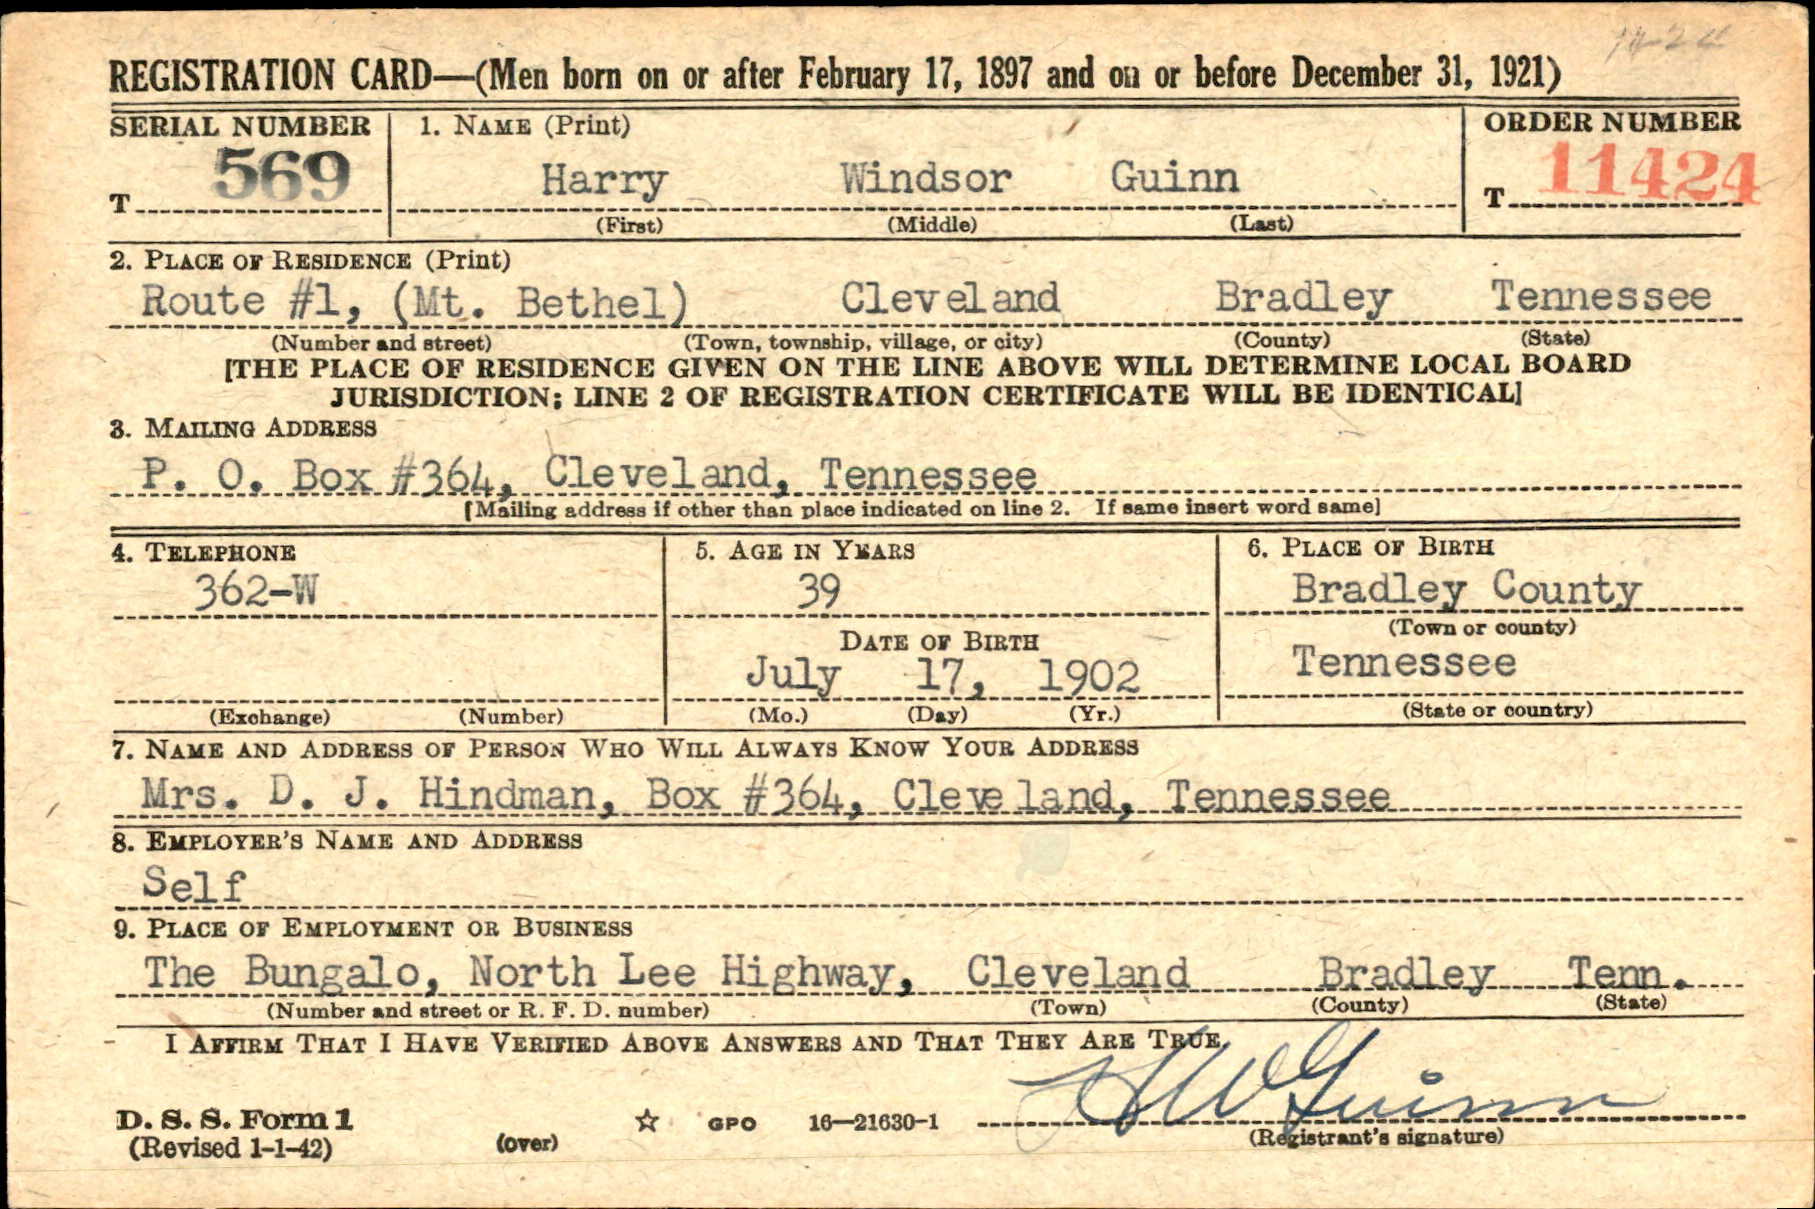 REGISTRATION CARD—(Men born on or after February 17, 1897 and on or before December 31, 1921)
SERIAL NUMBER 1. NAME (Print) ORDER NUMBER
T 569 Harry Windsor Guinn T 11424
(First) (Middle) (Last)
2. PLACE OF RESIDENCE (Print)
Route #1, (Mt. Bethel) Cleveland Bradley Tennessee
(Number and street) (Town, township, village, or city) (County) (State)
[THE PLACE OF RESIDENCE GIVEN ON THE LINE ABOVE WILL DETERMINE LOCAL BOARD
JURISDICTION; LINE 2 OF REGISTRATION CERTIFICATE WILL BE IDENTICAL]
3. MAILING ADDRESS
P. O. Box #364, Cleveland, Tennessee
[Mailing address if other than place indicated on line 2. If same insert word same]
4. TELEPHONE 5. AGE IN YEARS 6. PLACE OF BIRTH
362-W 39 Bradley County
(Town or county)
DATE OF BIRTH
July 17, 1902 Tennessee
(Exchange) (Number) (Mo.) (Day) (Yr.) (State or country)
7. NAME AND ADDRESS OF PERSON WHO WILL ALWAYS KNOW YOUR ADDRESS
Mrs. D. J. Hindman, Box #364, Cleveland, Tennessee
8. EMPLOYER'S NAME AND ADDRESS
Self
9. PLACE OF EMPLOYMENT OR BUSINESS
The Bungalo, North Lee Highway, Cleveland Bradley Tenn.
(Number and street or R. F. D. number) (Town) (County) (State)
I AFFIRM THAT I HAVE VERIFIED ABOVE ANSWERS AND THAT THEY ARE TRUE.
H W Guinn
D. S. S. Form 1 ☆ GPO 16—21630-1
(Revised 1-1-42) (over) (Registrant's signature)